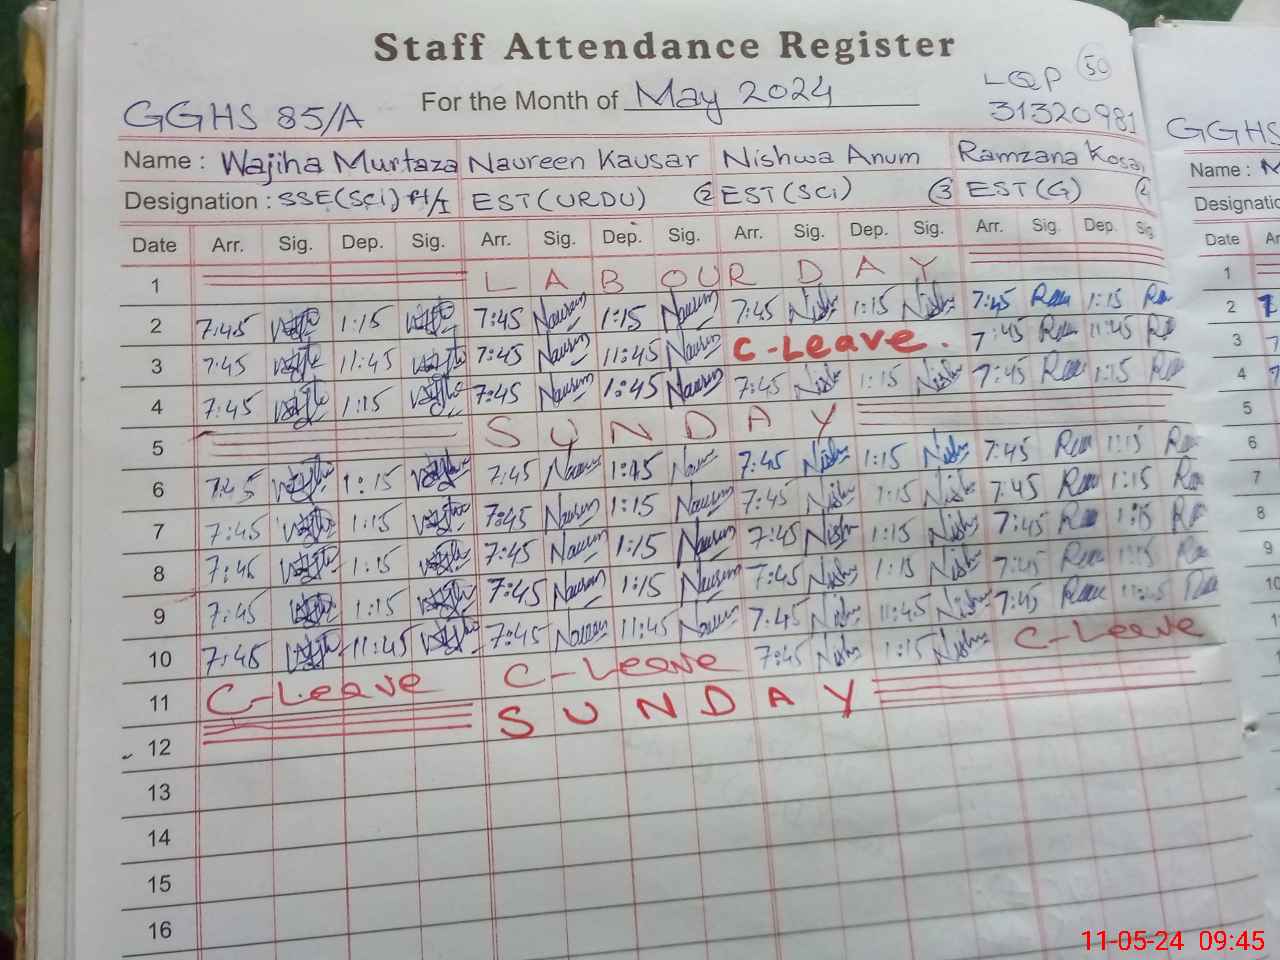 Staff Attendance Register
LQP 50
For the Month of May 2024
GGHS 85/A 31320981
GGHS
Name : Wajiha Murtaza Naureen Kausar Nishwa Anum Ramzana Kosar
Name :
Designation : SSE(Sci) EST(URDU) 2 EST(SCI) 3 EST(G) 4
Designatio
Date Arr. Sig. Dep. Sig. Arr. Sig. Dep. Sig. Arr. Sig. Dep. Sig. Arr. Sig. Dep. Sig
Date Ar
1 LABOUR DAY
1
2 7:45 1:15 7:45 Naureen 1:15 Naureen 7:45 Nish 1:15 Nish 7:45 Ram 1:15 Ra
2
3 7:45 11:45 7:45 Naureen 11:45 Naureen C-Leave. 7:45 Ram 11:45 Ra
3
4 7:45 1:15 7:45 Naureen 1:45 Naureen 7:45 Nish 1:15 Nish 7:45 Ram 1:15 Ra
4
5 SUNDAY
5
6 7:45 1:15 7:45 Naureen 1:15 Naureen 7:45 Nish 1:15 Nish 7:45 Ram 1:15 Ra
6
7 7:45 1:15 7:45 Naureen 1:15 Naureen 7:45 Nish 1:15 Nish 7:45 Ram 1:15 Ra
7
8 7:45 1:15 7:45 Naureen 1:15 Naureen 7:45 Nish 1:15 Nish 7:45 Ram 1:15 Ra
8
9 7:45 1:15 7:45 Naureen 1:15 Naureen 7:45 Nish 1:15 Nish 7:45 Ram 1:15 Ra
9
10 7:45 11:45 7:45 Naureen 11:45 Naureen 7:45 Nish 11:45 Nish 7:45 Ram 11:45 Ra
10
11 C-Leave C-Leave 7:45 Nish 1:15 Nish C-Leave
12 SUNDAY
13
14
15
16
11-05-24 09:45